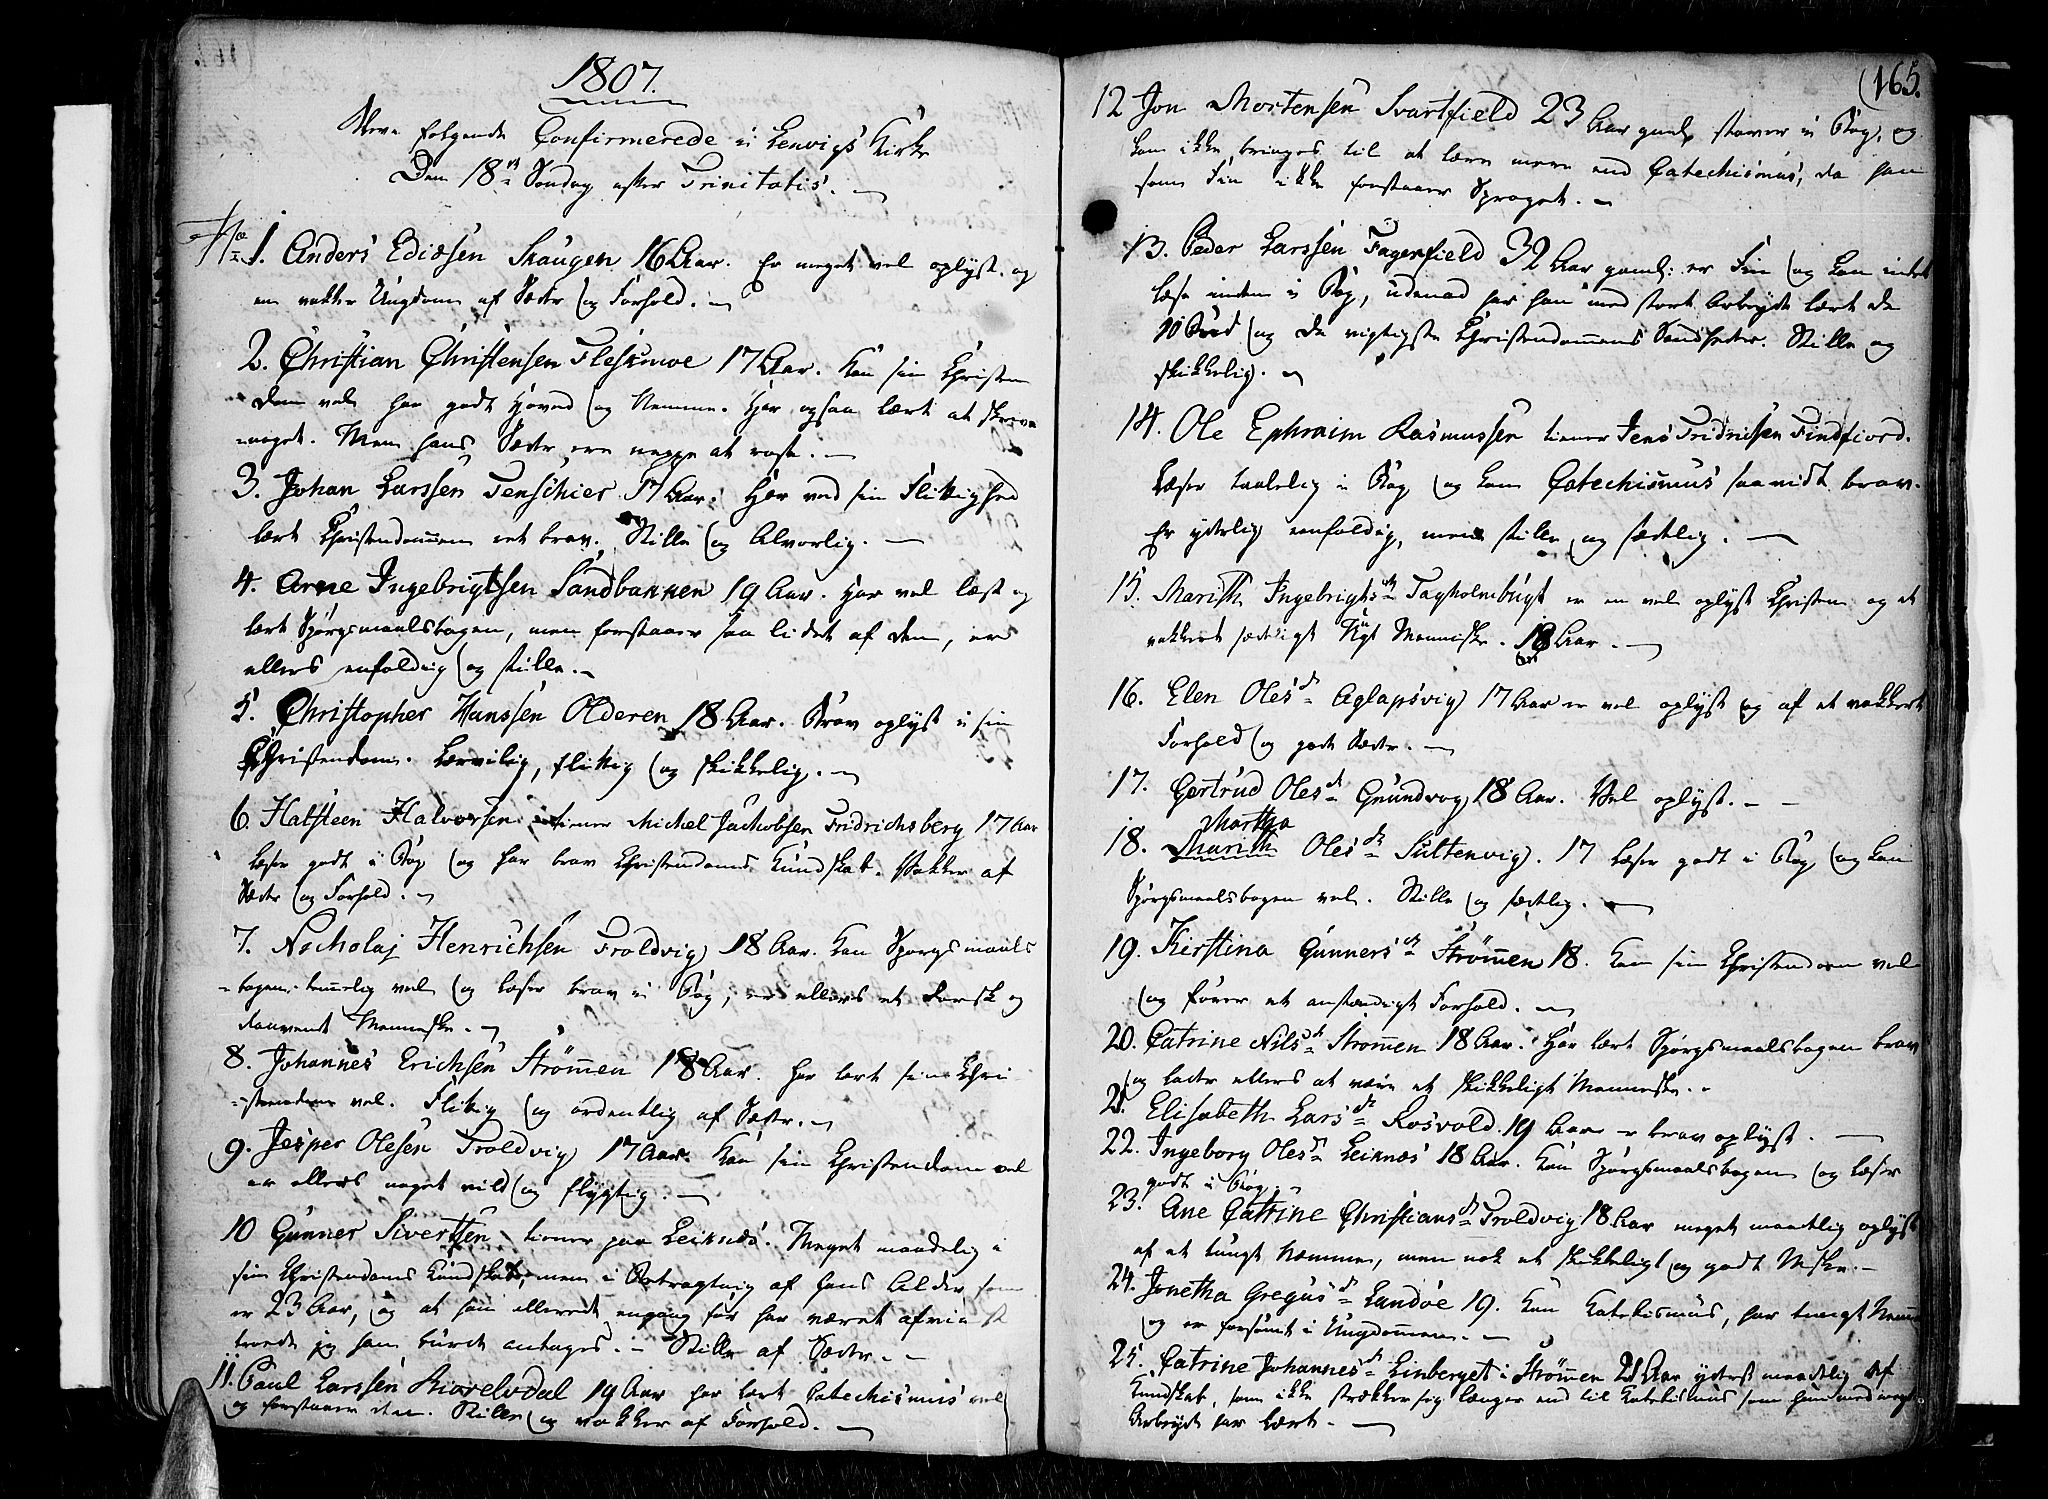 1807.
Bleve følgende Confirmerede i Lenvigs Kirke
Den 18de Søndag efter Trinitatis.
1. Anders Ediæsen Skaugen 16 Aar. Er meget vel oplyst og
en vakker Ungdom af Sæder og Forhold.
2. Christian Christensen Flesnmoe 17 Aar. Kan sin Christen
dom vel har godt Hoved og Nemme. Har ogsaa lært at skrive
noget. Men hans Sæder ere neppe at rose.
3. Johan Larssen Tenschier 17 Aar. Har ved sin Flittighed
lært Christendommen ret brav. Stille og Alvorlig.
4. Arne Ingebrigtsen Sandbannen 19 Aar. Har vel læst og
lært Spørgsmaalsbogen, men forstaaer saa lidet af den, er
ellers enfoldig og stille.
5. Christopher Hanssen Olderen 18 Aar. Brav oplyst i sin
Christendom. Lærvillig, flittig og skikkelig.
6. Halfsteen Halvorsen tiener Michel Jachobsen Fridrichsberg 17 Aar
læser godt i Bog og har brav Christendoms Kundskab. Vakker af
Sæder og Forhold.
7. Nicholaj Henrichsen Troldvig 18 Aar. Kan Spørgsmaals
bogen temmelig vel og læser brav i Bog, er ellers et
Menneske.
8. Johannes Erichsen Strömmen 18 Aar. Har lært sin Chri
stendom vel. Flittig og ordentlig af Sæder.
9. Jesper Olesen Troldvig 17 Aar. Kan sin Christendom vel
er ellers noget vild og flygtig.
10 Gunner Sivertsen tiener paa Leiknes. Meget maadelig i
sin Christendoms Kundskab, men i Betragtning af hans Alder som
er 23 Aar, og at han allerede engang før har været afviist
troede jeg han burde antages. Stille af Sæder.
11. Paul Larssen 19 Aar har lært Catechismus vel
og forstaaer den. Stille og vakker af Forhold.
165.
12 Jon Mortensen Svartfield 23 Aar gaml staver i Bog, og
kan ikke bringes til at lære mere end Catechismus, da han
som Fin ikke forstaaer Sproget.
13. Peder Larssen Fagerfield 32 Aar gaml: er Fin og kan intet
læse inden i Bog, udenad har han med stort Arbeyde lært de
10 Bud og de vigtigste Christendommens Sandheder. Stille og
skikkelig.
14. Ole Ephraim Rasmussen tiener Jens Fridrichsen Findfiord.
Læser taalelig i Bog og kan Catechismus saavidt brav.
Er yderlig eenfoldig, men stille og sædelig.
15. Marith Ingebrigtsdr Tagholmbugt er en vel oplyst Christen og et
vakkert sædeligt Menniske. 18 Aar.
16. Elen Olesdr Aglapsvig 17 Aar er vel oplyst og af et vakkert
Forhold og gode Sæder.
17. Gertrud Olesdr Grundvog 18 Aar. Vel oplyst.
Martha
18. Marith Olesdr Sultenvig. 17 læser godt i Bog og kan
Spørgsmaalsbogen vel. Stille og sædelig.
19. Kirstina Gunnersdr Strömmen 18. Kan sin Christendom vel
og fører et anstændigt Forhold.
20. Catrine Nilsdr Strömmen 18 Aar. Har lært Spørgsmaalsbogen brav
og lader ellers at være et skikkeligt Menneske.
21. Elisabeth Larsdr Rosvold. 19 Aar er brav oplyst.
22. Ingeborg Olesdr Leiknes 18 Aar. Kan Spørgsmaalsbogen og læser
godt i Bog.
23. Ane Catrine Christiansdr Troldvig 18 Aar meget maadelig oplyst
af et tungt Nemme, men nok et skikkeligt og godt Mske.
24. Jonetha Gregusdr Landøe 19. Kan Katekismus, har tungt Nemme
og er forsømt i Ungdommen.
25. Catrine Johannesdr Linberget i Strömmen 21 Aar yderst maadelig af
Kundskab, som ikke strækker sig længer end til Katekismus som hun med megen
Arbeyde har lært.